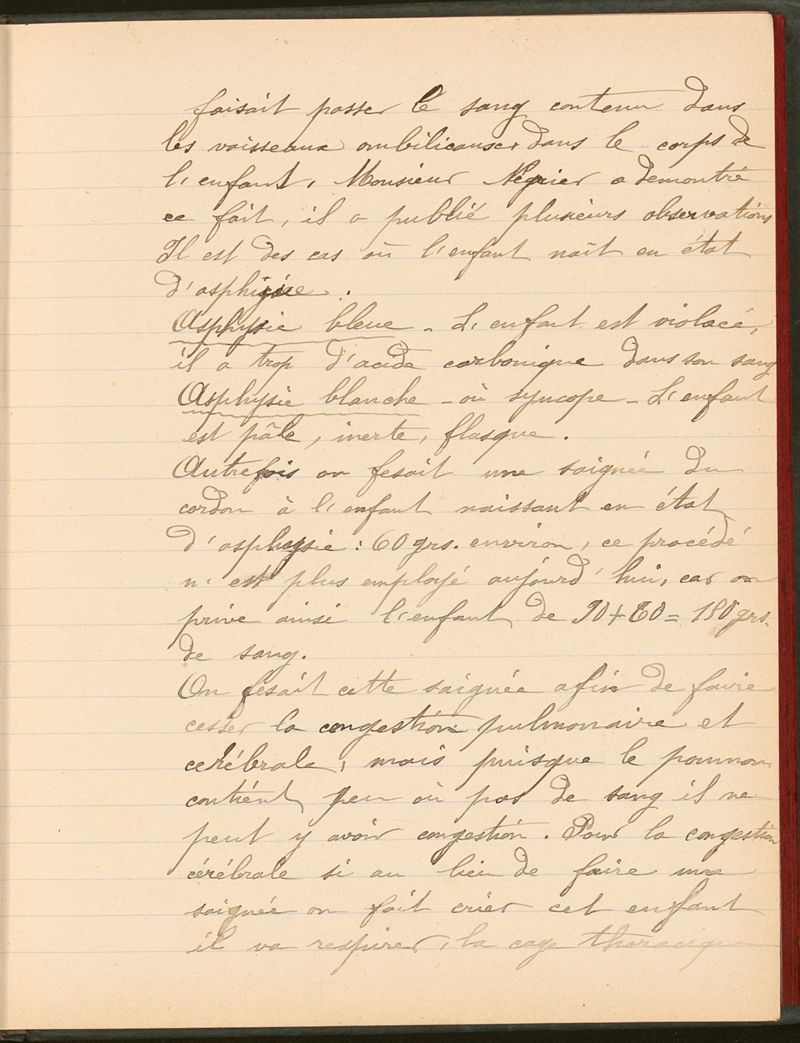 faisait passer le sang contenu dans
les vaisseaux ombilicaux dans le corps de
l'enfant, Monsieur Négrier a démontré
ce fait, il a publié plusieurs observations
Il est des cas où l'enfant naît en état
d'asphyxie.
Asphysie bleue - L'enfant est violacé,
il a trop d'acide carbonique dans son sang
Asphysie blanche - où syncope - L'enfant
est pâle, inerte, flasque.
Autrefois on fesait une saignée du
cordon à l'enfant naissant en état
d'asphysie : 60 grs. environ, ce procédé
n'est plus employé aujourd'hui, car on
prive ainsi l'enfant de 90 + 60 = 150 grs.
de sang.
On fesait cette saignée afin de faire
cesser la congestion pulmonaire et
cérébrale, mais puisque le poumon
contient peu où pas de sang il ne
peut y avoir congestion. Pour la congestion
cérébrale si au lieu de faire une
saignée on fait crier cet enfant
il va respirer, la cage thoracique